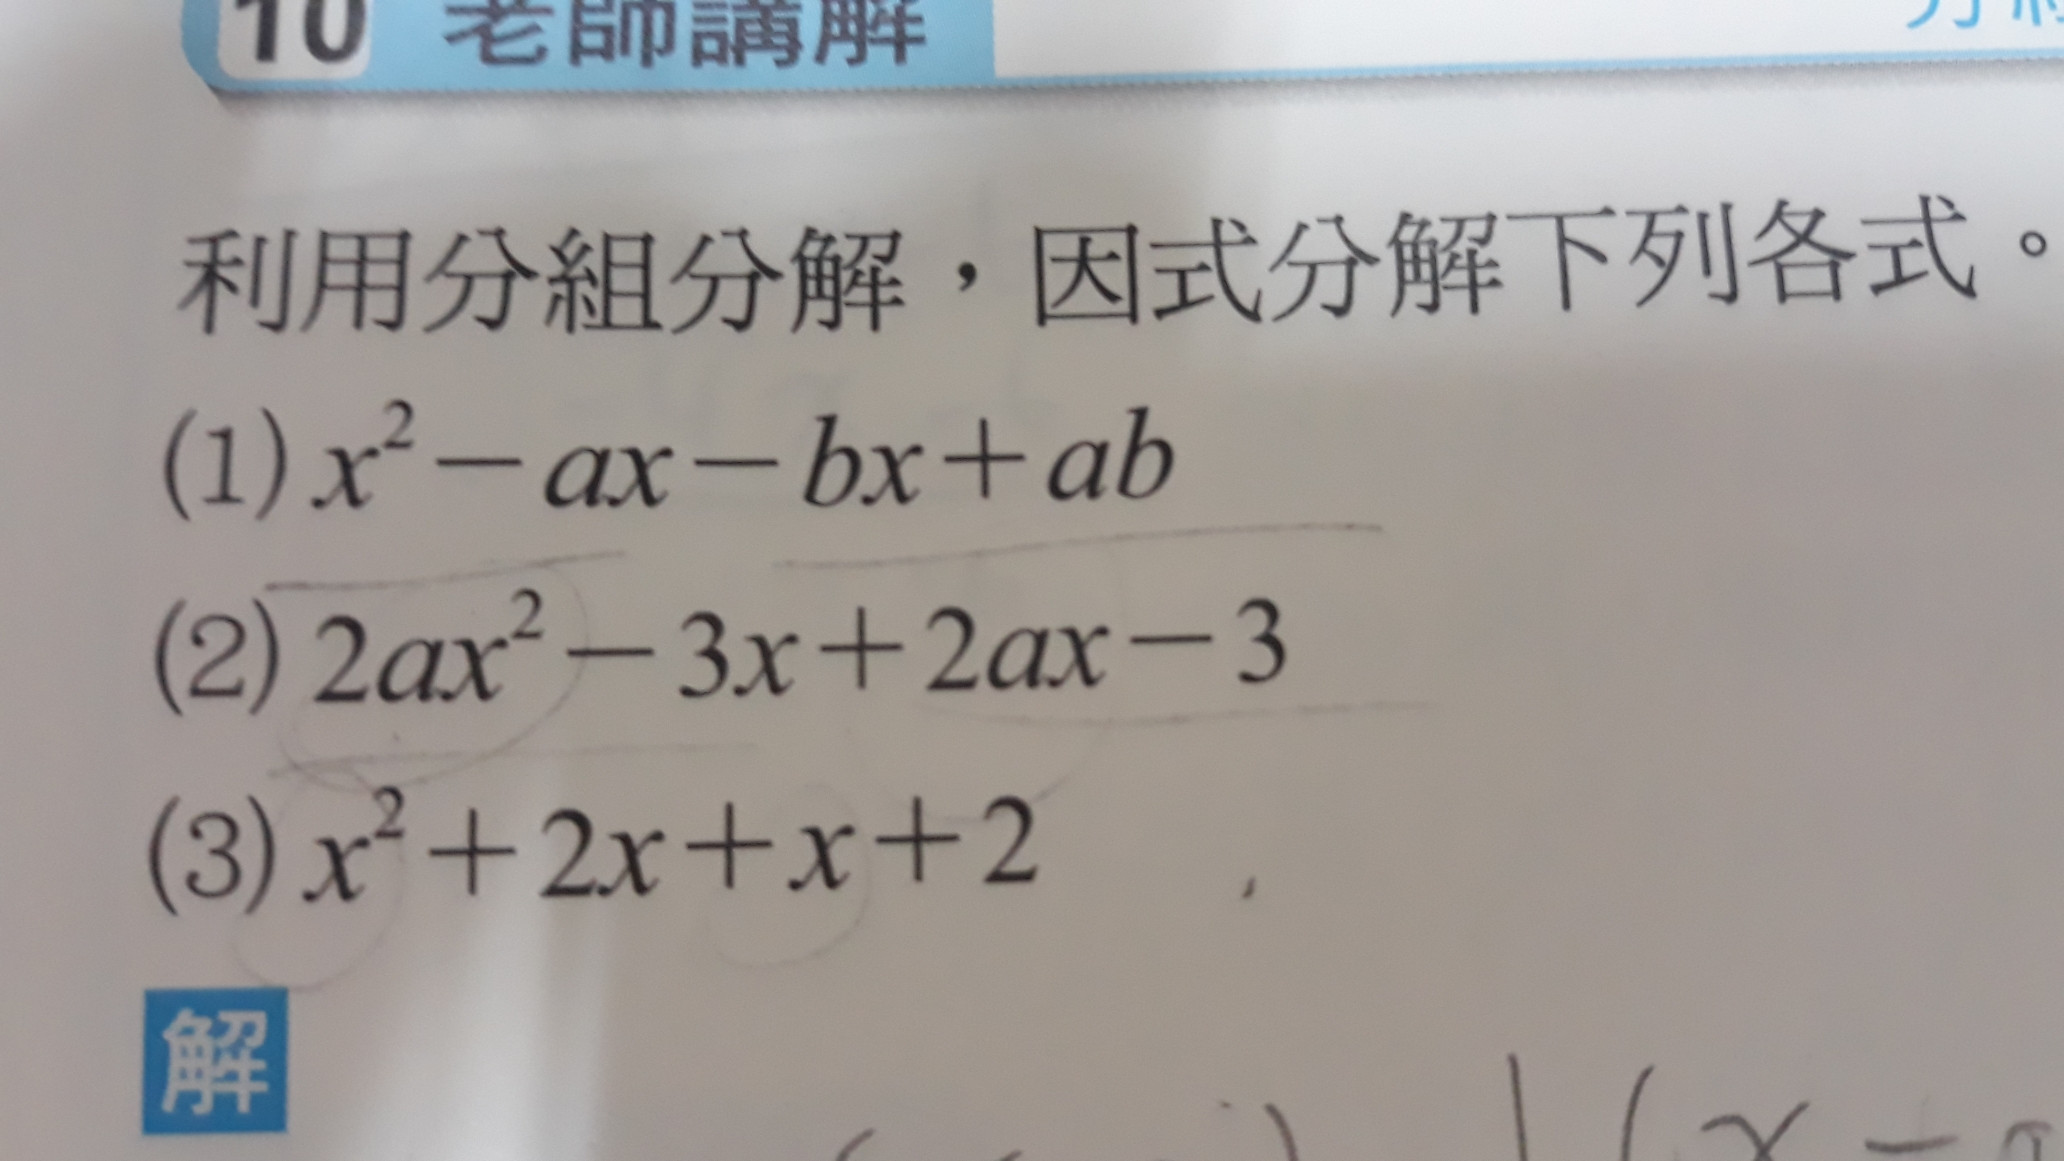 10 老師講解
利用分組分解，因式分解下列各式。
(1) x² − ax − bx + ab
(2) 2ax² − 3x + 2ax − 3
(3) x² + 2x + x + 2
解